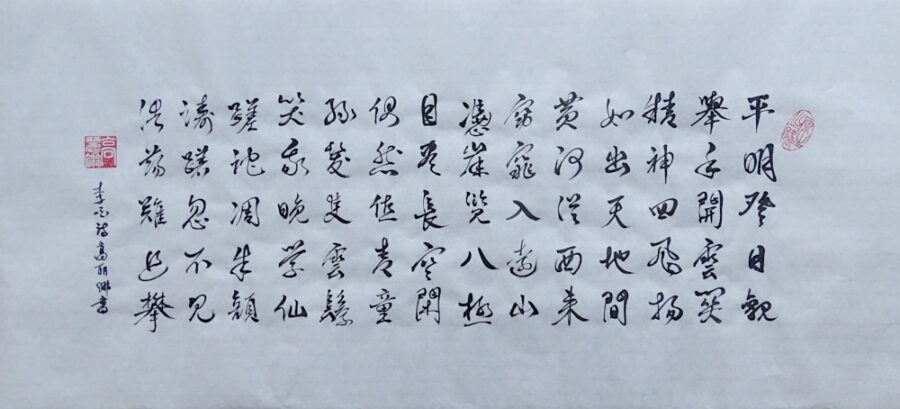 平明登日觀
舉手開雲關
精神四飛揚
如出天地間
黃河從西來
窈窕入遠山
憑崖覽八極
目盡長空閑
偶然值青童
綠髮雙雲鬟
笑我晚學仙
蹉跎凋朱顏
躊躇忽不見
浩蕩難追攀
李白詩高丽娜書